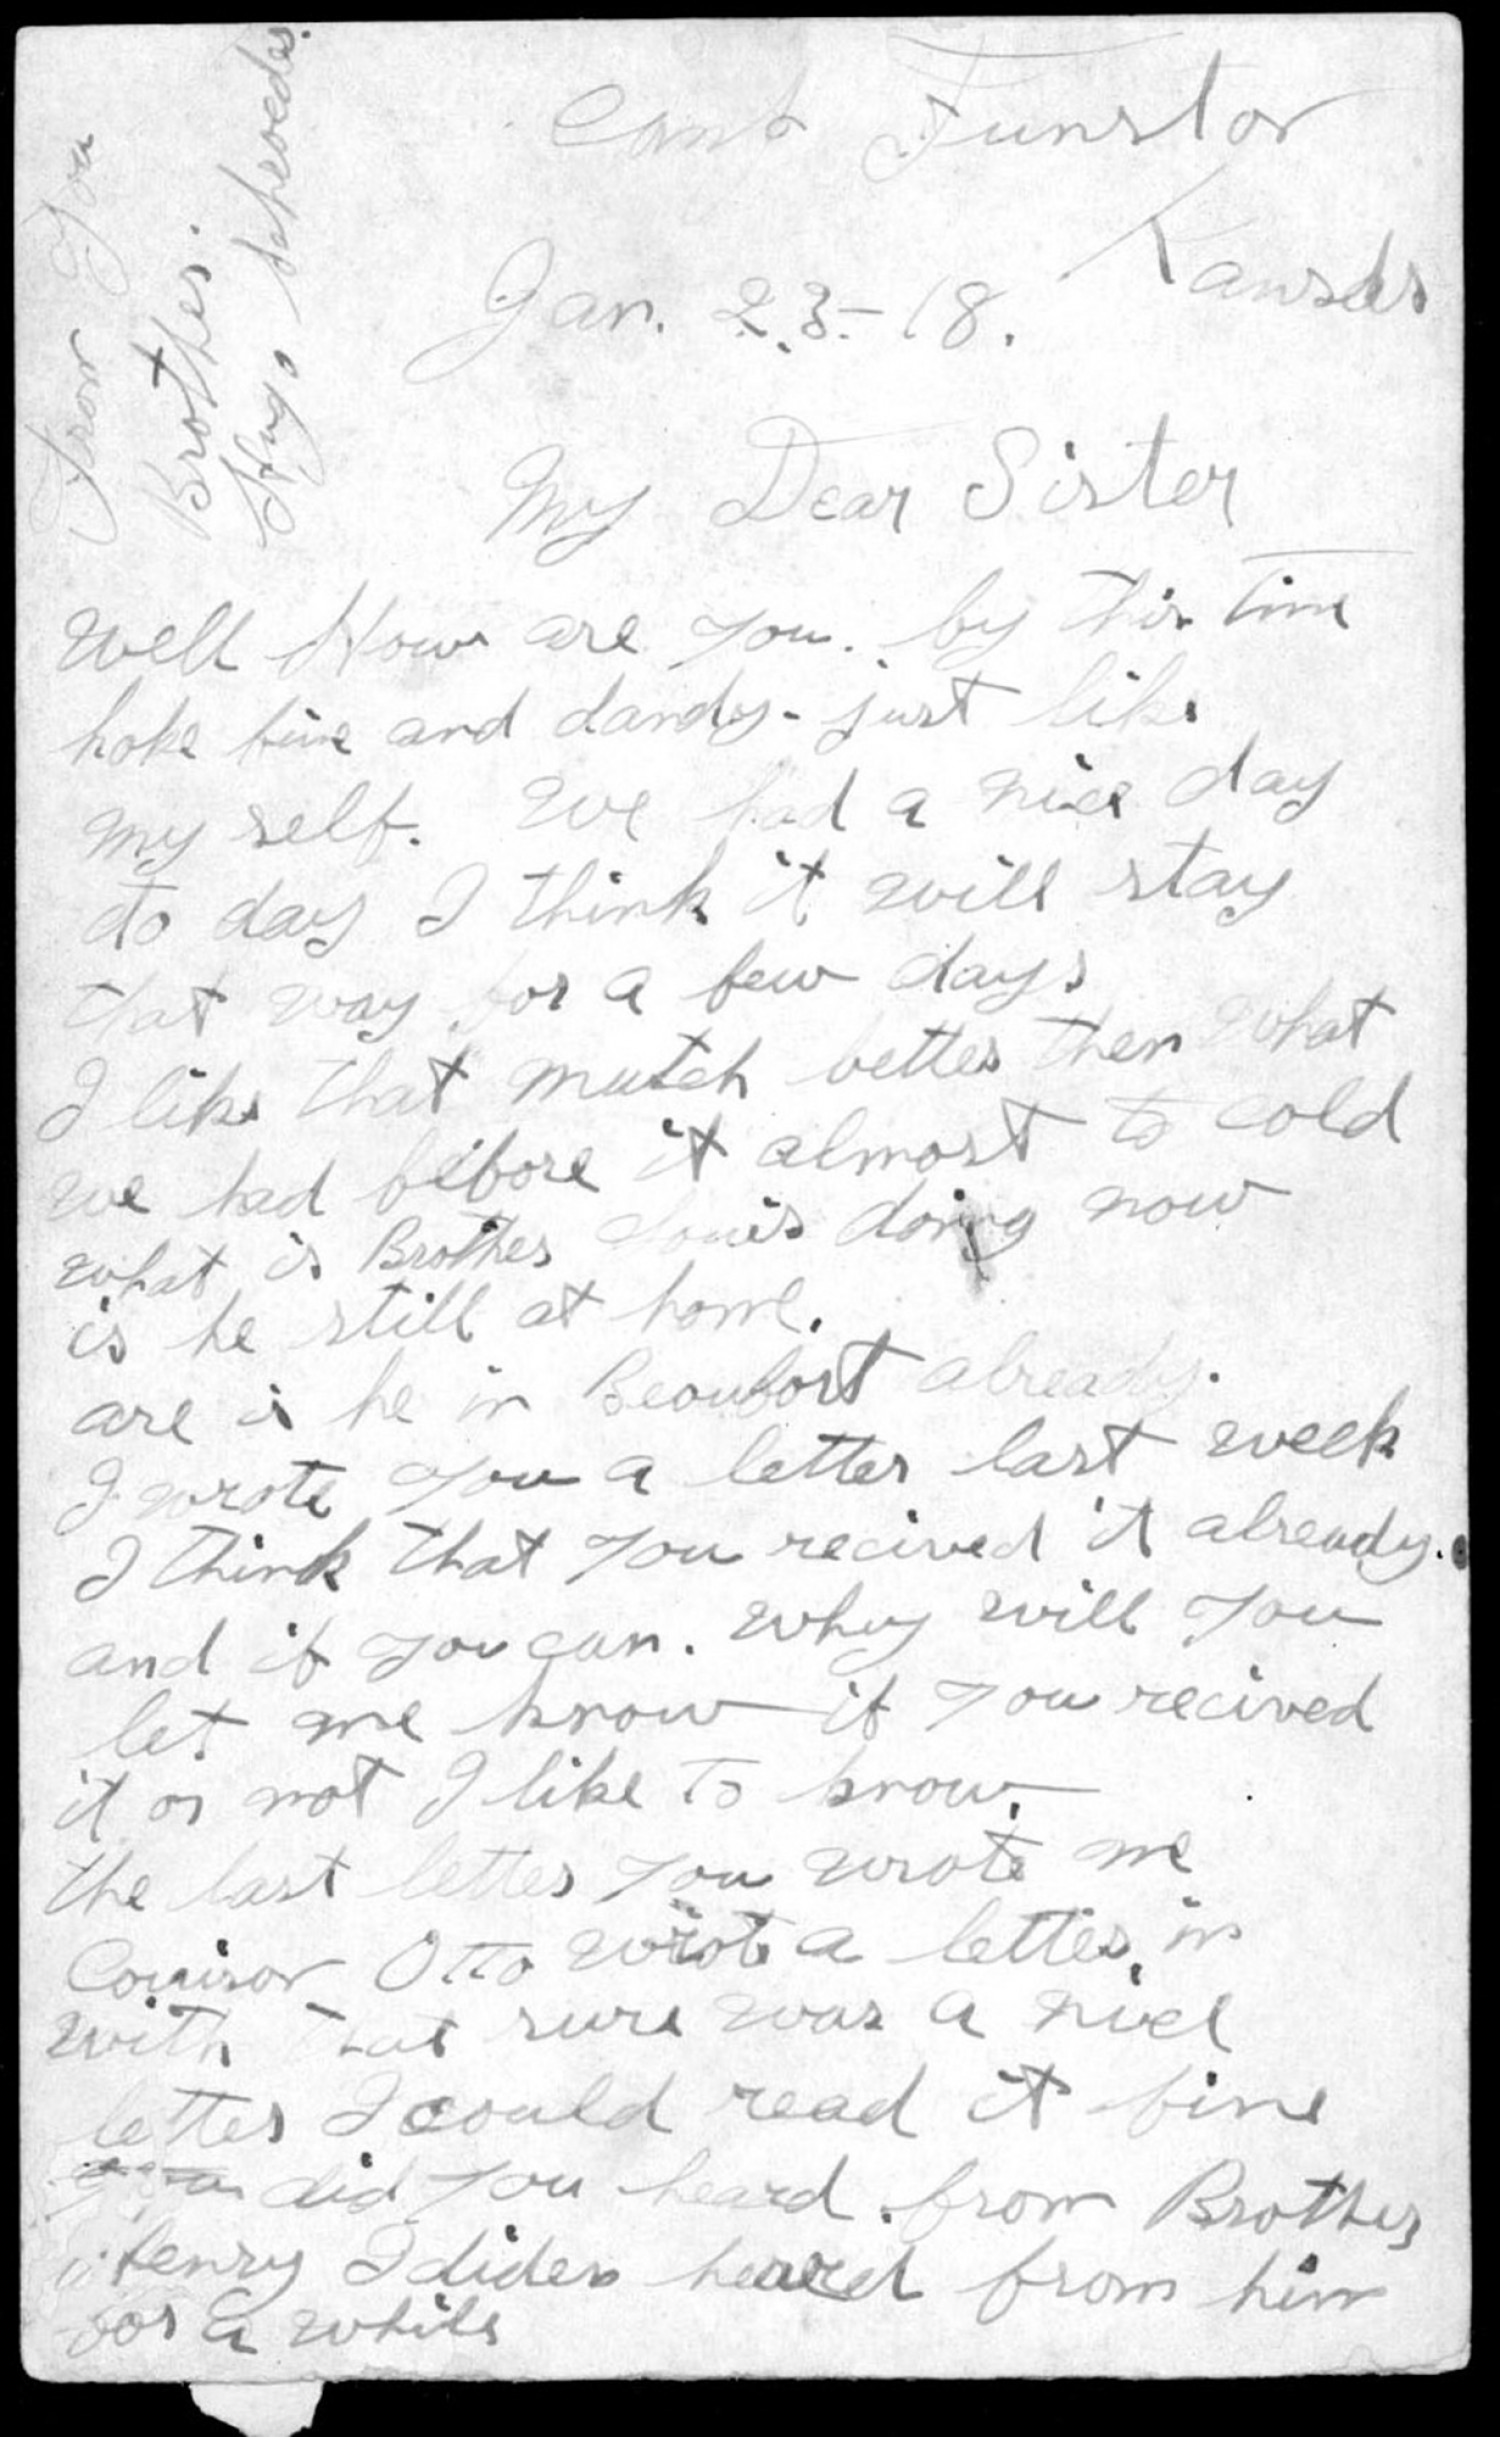 Camp Funston
Kansas
Jan. 23-18.
My Dear Sister
Well How are you. by this time
hope fine and dandy - just like
my self. We had a nice day
to day I think it will stay
that way for a few days
I like that mutch better then what
we had before it almost to cold
what is Brother Louis doing now
is he still at home.
are is he in Beaufort already.
I wrote you a letter last week
I think that you recived it already.
and if you can. why will you
let me know if you recived
it or not I like to know.
the last letter you wrote me
Otto wrote a letter in
with that sure was a nice
letter I could read it fine
did you heard from Brother
Henry I diden heard from him
for a while
From You
Brother.
Hugo